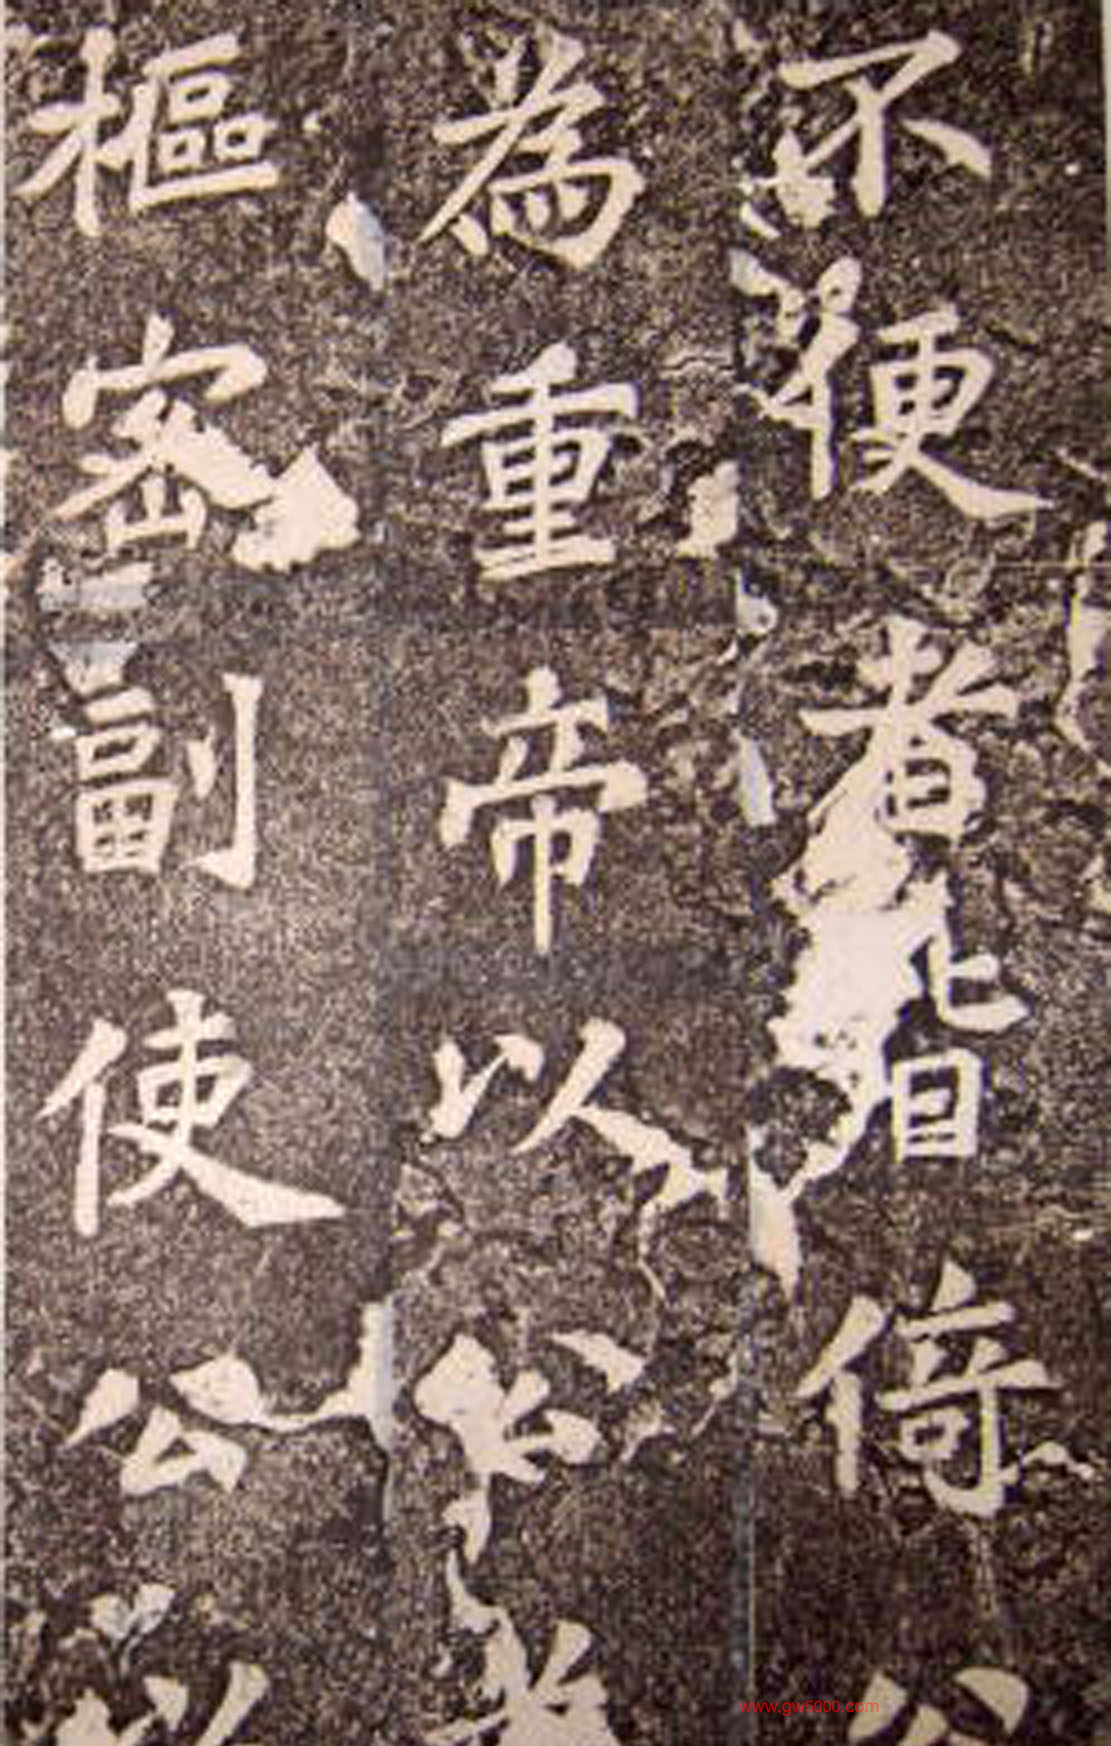 不便者皆倚公
為重帝以公
樞密副使公以
www.gw5000.com